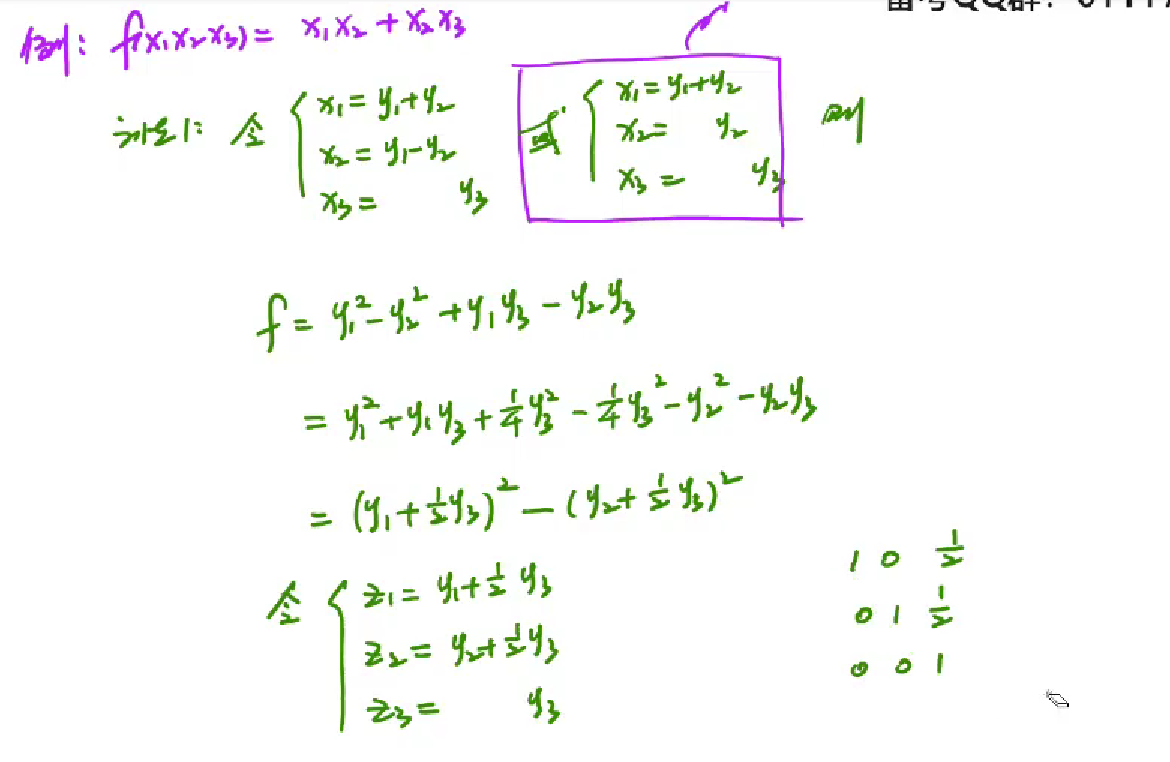 备考QQ群:
例: f(x₁x₂x₃) = x₁x₂ + x₂x₃
方法1: 令 { x₁ = y₁+y₂
x₂ = y₁-y₂
x₃ = y₃
或 { x₁ = y₁+y₂
x₂ = y₂
x₃ = y₃
则
f = y₁² - y₂² + y₁y₃ - y₂y₃
= y₁² + y₁y₃ + 1/4 y₃² - 1/4 y₃² - y₂² - y₂y₃
= (y₁ + 1/2 y₃)² - (y₂ + 1/2 y₃)²
令 { z₁ = y₁ + 1/2 y₃
z₂ = y₂ + 1/2 y₃
z₃ = y₃
1 0 1/2
0 1 1/2
0 0 1